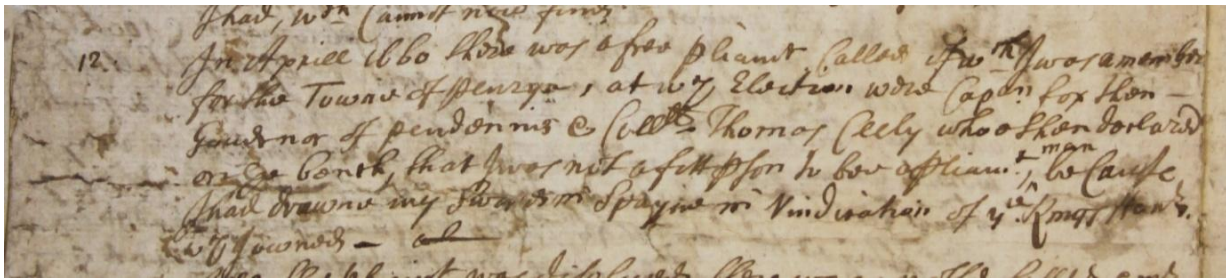 I had, wch Cannot now find
12. In Aprill 1660 there was a free pliamt Called of wch I was a member
for the Towne of Penryn, at wch Election were Capn ffox then
Governor of pendennis & Collll Thomas Ceely who then declared
on ye bench, that I was not a fitt pson to bee a pliamt man, because
I had drawne my Sword in Spayne in Vindication of ye Kings Honr.
wch I owned